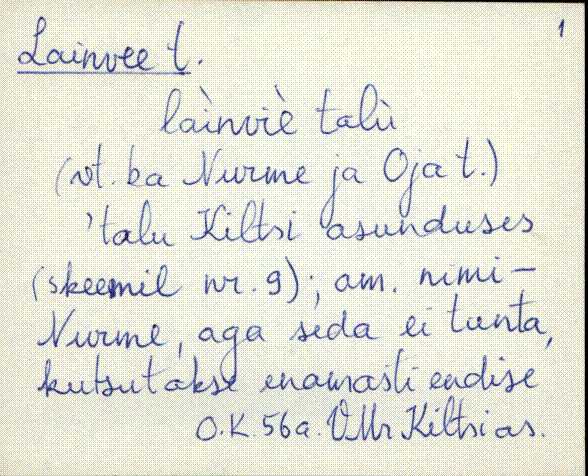 1
Lainvee t.
làinviè talù
(vt. ka Nurme ja Oja t.)
'talu Kiltsi asunduses
(skeemil nr. 9); am. nimi –
Nurme, aga seda ei tunta,
kutsutakse enamasti endise
O.K. 56a. VMr Kiltsi as.